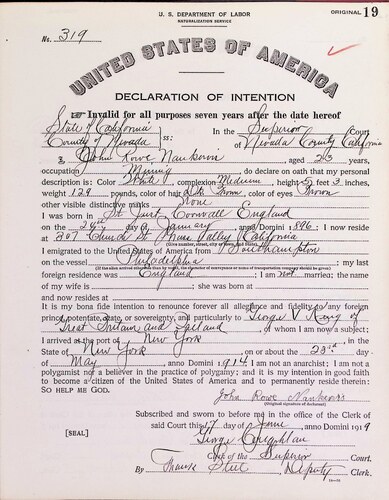 U. S. DEPARTMENT OF LABOR
NATURALIZATION SERVICE
ORIGINAL 19
No. 319
UNITED STATES OF AMERICA
DECLARATION OF INTENTION
Invalid for all purposes seven years after the date hereof
State of California
County of Nevada ss:
In the Superior Court
of Nevada County California
I, John Rowe Nankervis, aged 23 years,
occupation Mining, do declare on oath that my personal
description is: Color White, complexion Medium, height 5 feet 3 inches,
weight 129 pounds, color of hair Dk Brown, color of eyes Brown
other visible distinctive marks None
I was born in St Just Cornwall England
on the 24th day of January, anno Domini 1896; I now reside
at 807 Church St. Grass Valley, California
(Give number, street, city or town, and State.)
I emigrated to the United States of America from Southampton
on the vessel Philadelphia; my last
(If the alien arrived otherwise than by vessel, the character of conveyance or name of transportation company should be given.)
foreign residence was England; I am not married; the name
of my wife is; she was born at
and now resides at
It is my bona fide intention to renounce forever all allegiance and fidelity to any foreign
prince, potentate, state, or sovereignty, and particularly to George V King of
Great Britain and Ireland, of whom I am now a subject;
I arrived at the port of New York, in the
State of New York, on or about the 23rd day
of May, anno Domini 1914; I am not an anarchist; I am not a
polygamist nor a believer in the practice of polygamy; and it is my intention in good faith
to become a citizen of the United States of America and to permanently reside therein:
SO HELP ME GOD.
John Rowe Nankervis
(Original signature of declarant.)
Subscribed and sworn to before me in the office of the Clerk of
said Court this 17 day of June, anno Domini 1919
[SEAL]
George Coughlan
Clerk of the Superior Court.
By Steel, Deputy Clerk.